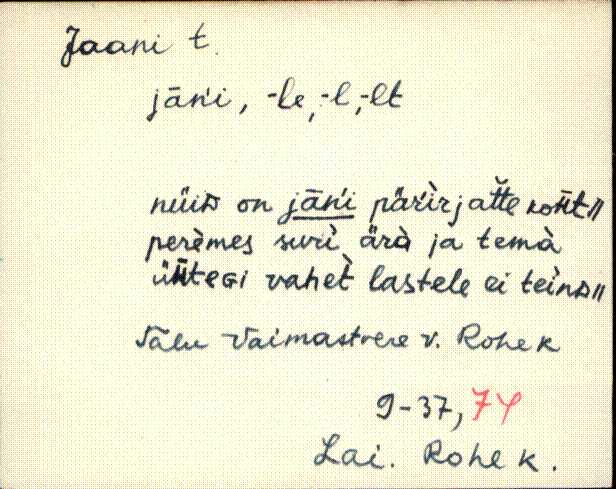 Jaani t.
jāńi, -le, -l, -lt
nüiᴅ on jāńi päŕìrjatte koʜt//
perèmes surì ärà ja temà
üʜteɢi vahet̀ lastele ei teinᴅ//
Talu Vaimastvere v. Rohe k
9-37, 74
Lai. Rohe k.